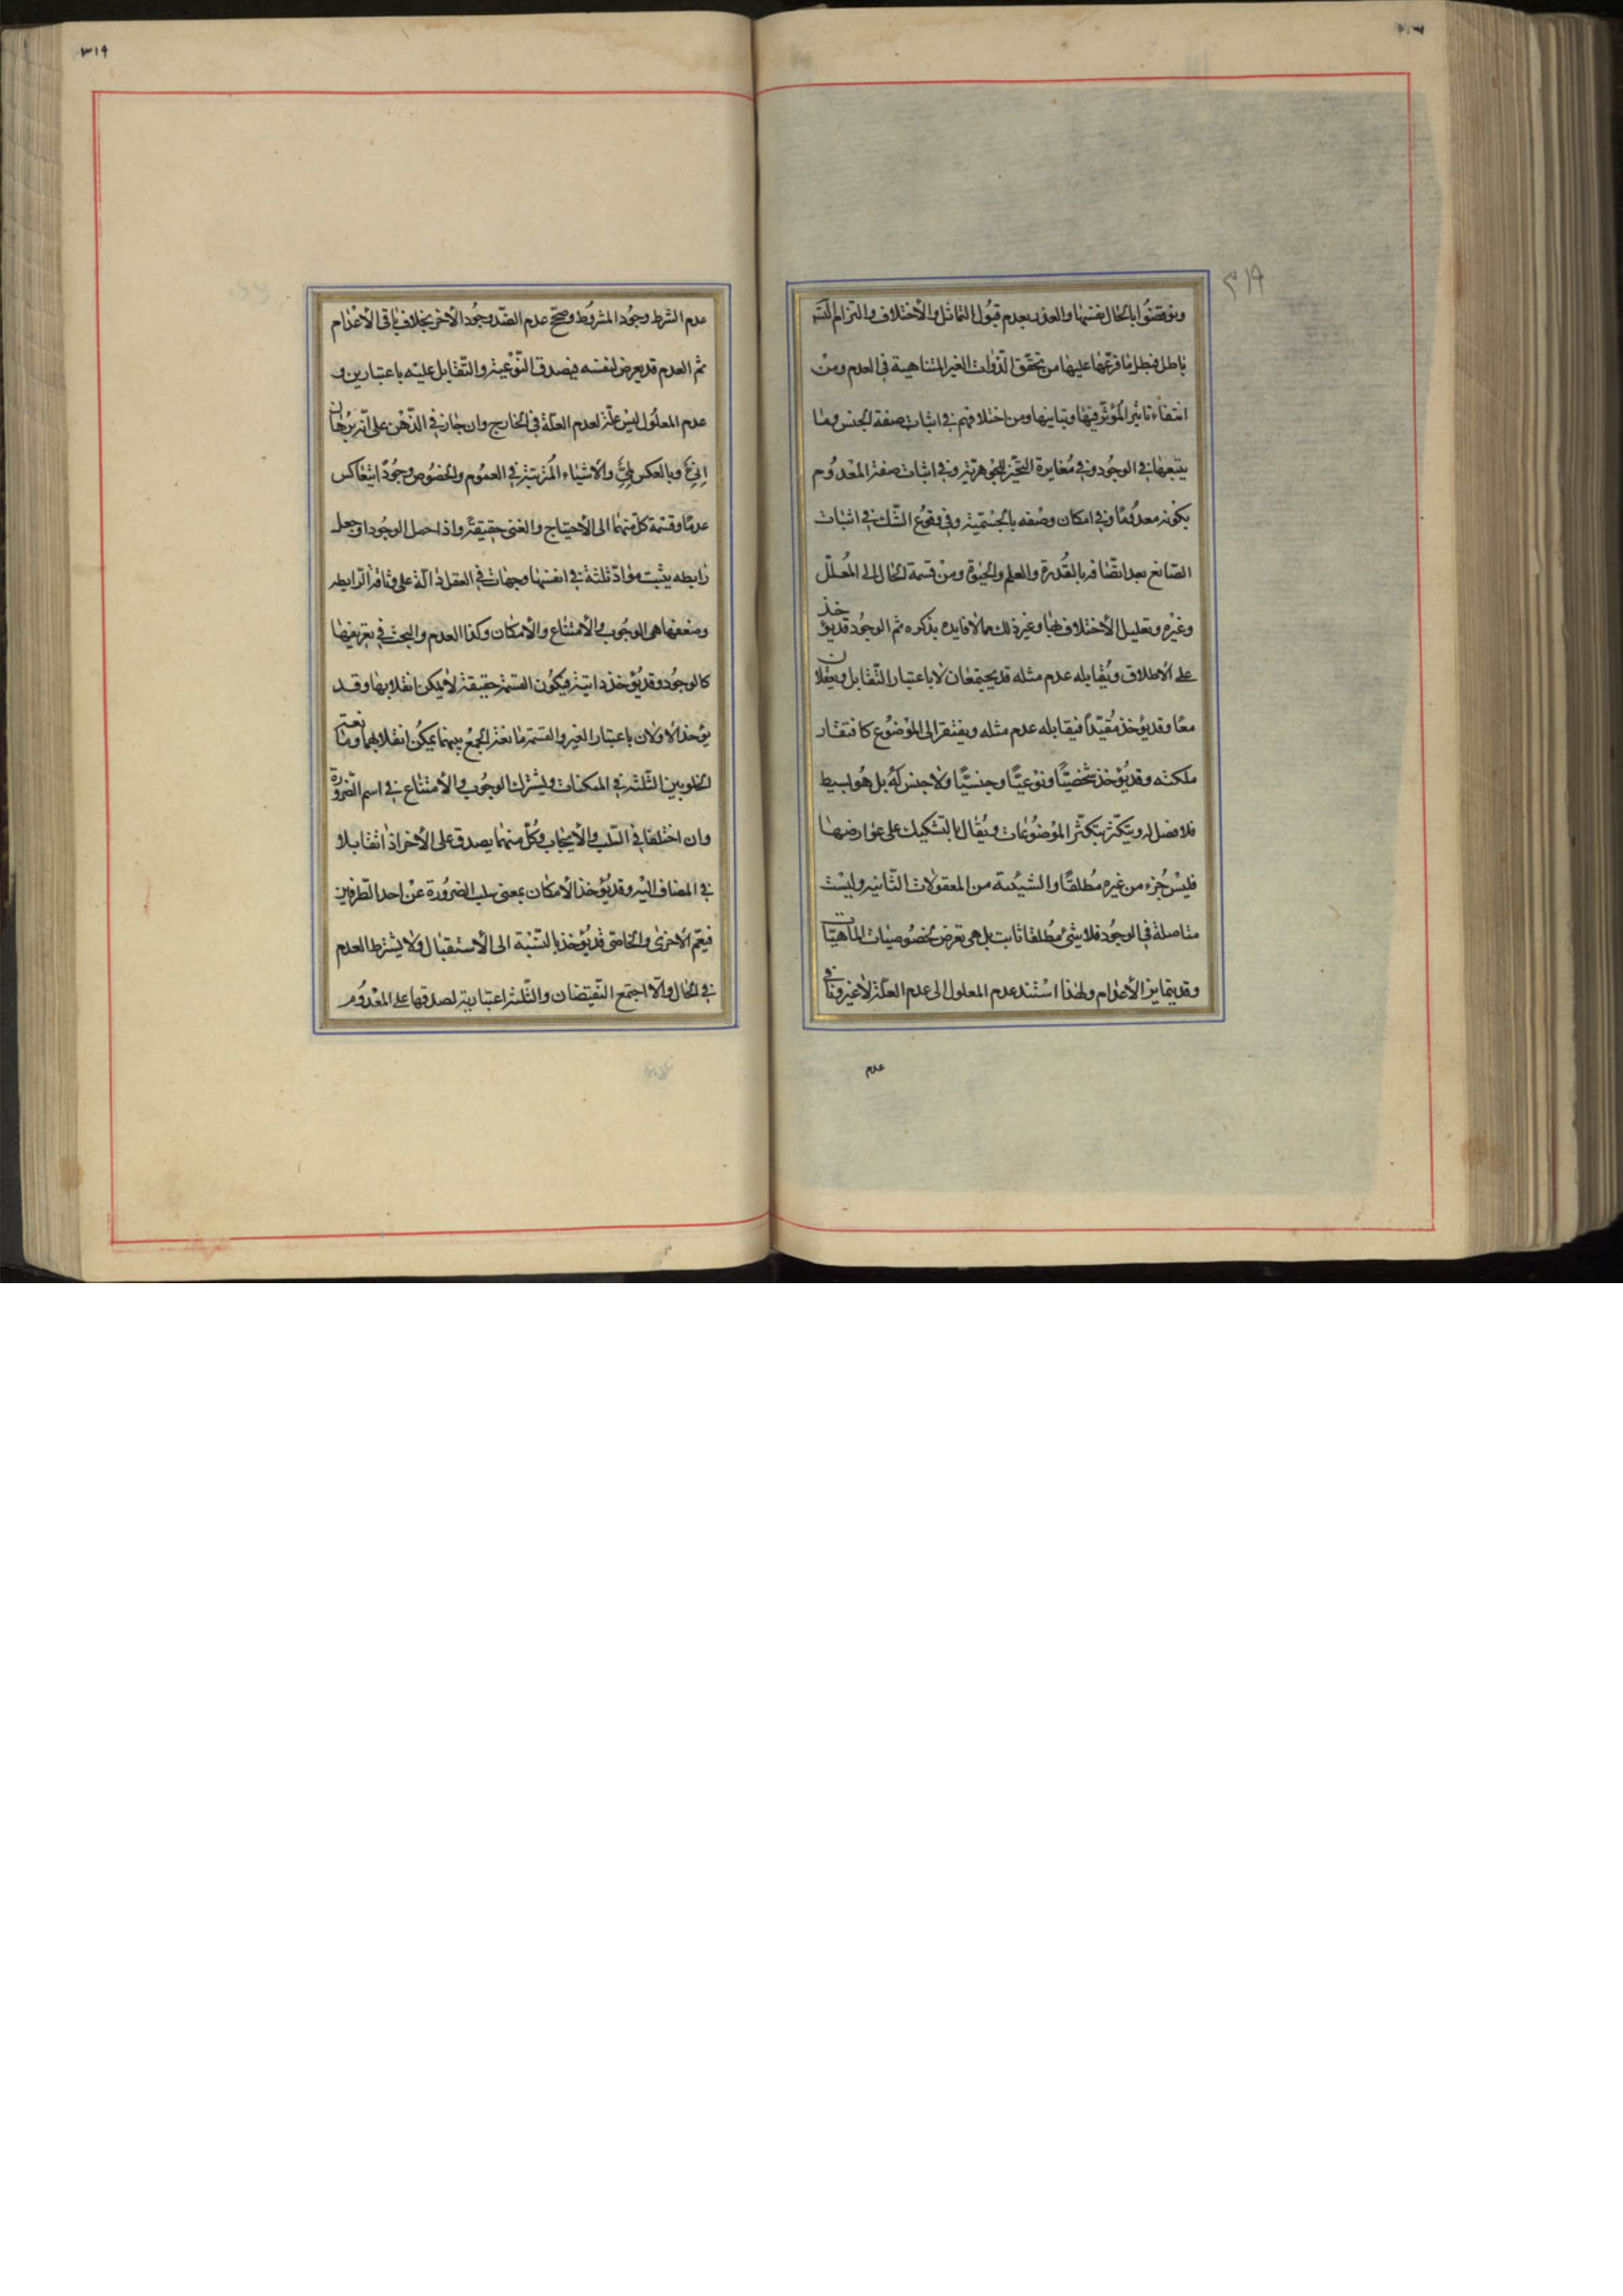 ٣١٩
ونوقضوا بالحال نفسها والعذر بعدم قبول التماثل والاختلاف والتزام التسلسل
باطل فبطل ما فرعها عليها من تحقق الذوات الغير المتناهية في العدم ومن
انتفاء تاثير المؤثر فيها وتباينها ومن اختلافهم في اثبات صفة الجنس وما
يتبعها في الوجود وفي مغايرة التحيز للجوهرية وفي اثبات صفة المعدوم
بكونه معدوما وفي امكان وصفه بالجسمية وفي وقوع الشك في اثبات
الصانع بعد اتصافه بالقدرة والعلم والحيوة ومن قسمة الحال الى المعلل
وغيره وتعليل الاختلاف بها وغير ذلك مما لا فايدة بذكره ثم الوجود قد يؤخذ
على الاطلاق ويقابله عدم مثله قد يجتمعان لا باعتبار التقابل ويعقلان
معا وقد يؤخذ مقيدا فيقابله عدم مثله ويفتقر الى الموضوع كافتقار
ملكته وقد يؤخذ شخصيا ونوعيا وجنسيا ولا جنس له بل هو بسيط
فلا فصل له ويتكثر بتكثر الموضوعات ويقال بالتشكيك على عوارضها
فليس جزء من غيره مطلقا والشيئية من المعقولات الثانيه وليست
متاصلة في الوجود فلا شئ مطلقا ثابت بل هي تعرض لخصوصيات الماهيات
وقد يتمايز الاعدام ولهذا استند عدم المعلول الى عدم العلة لا غير ونافى
عدم
٣١٩
عدم الشرط وجود المشروط وصحح عدم الضد وجود الاخر بخلاف باقى الاعدام
ثم العدم قد يعرض لنفسه فيصدق النوعية والتقابل عليه باعتبارين و
عدم المعلول ليس علة لعدم العلة في الخارج وان جاز في الذهن على انه برهان
اني وبالعكس لمي والاشياء المترتبة في العموم والخصوص وجودا تتعاكس
عدما وقسمة كل منهما الى الاحتياج والغنى حقيقة واذا حمل الوجود او جعل
رابطه يثبت مواد ثلثة في انفسها وجهات في العقل دالة على وثاقة الرابطه
وضعفها هي الوجوب والامتناع والامكان وكذا العدم والبحث في تعريفها
كالوجود وقد يؤخذ ذاتية فيكون القسمة حقيقة لا يمكن انقلابها وقد
يؤخذ الاولان باعتبار الغير والقسمة مانعة الجمع بينهما يمكن انقلابهما ومانعة
الخلو بين الثلثة في الممكنات ويشترك الوجوب والامتناع في اسم الضرورة
وان اختلفا في السلب والايجاب وكل منهما يصدق على الاخر اذا تقابلا
في المضاف اليه وقد يؤخذ الامكان بمعنى سلب الضرورة عن احد الطرفين
فيعم الاخرى والخاص قد يؤخذ بالنسبة الى الاستقبال ولا يشترط العدم
في الحال والا اجتمع النقيضان والثلثة اعتبارية لصدقها على المعدوم